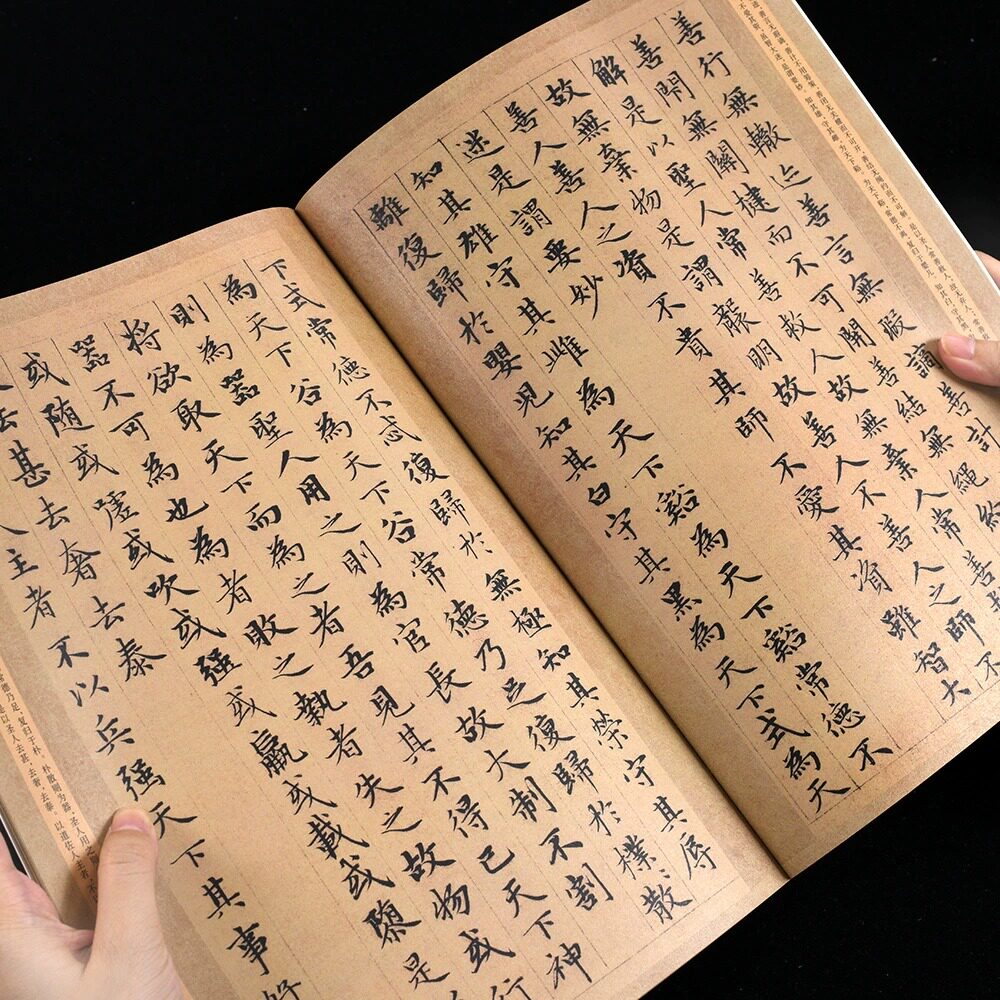 善行無轍迹善言無瑕讁善計
善閇無關楗而不可開善結無繩約
解是以聖人常善救人故無棄人常善
故無棄物是謂襲明故善人不善人之師不
善人善人之資不貴其師不愛其資雖智大
迷是謂要妙
知其雄守其雌為天下谿為天下谿常德不
離復歸於嬰兒知其白守其黑為天下式為天
下式常德不忒復歸於無極知其榮守其辱
為天下谷為天下谷常德乃足復歸於樸、散
則為器聖人用之則為官長故大制不割
將欲取天下而為之者吾見其不得已天下神
器不可為也為者敗之執者失之故物或行
或随或噓或吹或强或羸或載或隳是
人去甚去奢去泰
人主者不以兵强天下其事好